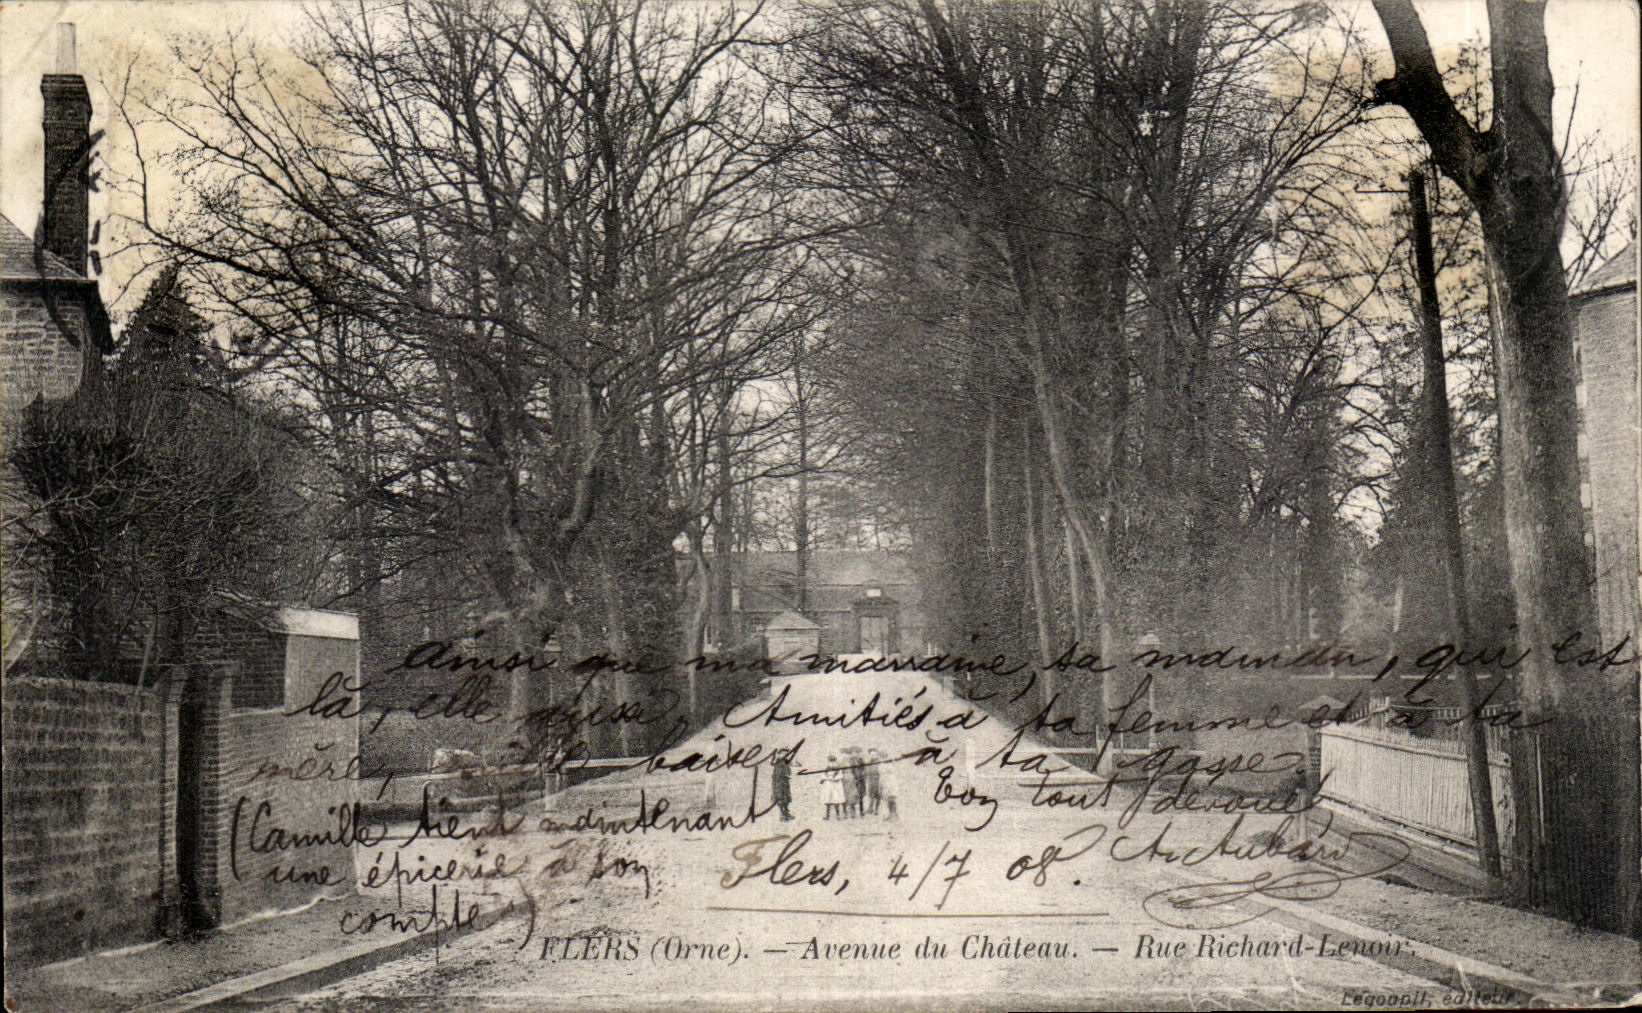 ainsi que ma marraine, sa maman, qui est
là, elle aussi. Amitiés à ta femme et à ta
mère, mille baisers à ta gosse.
Ton tout dévoué,
A. Aubard
(Camille tient maintenant
une épicerie à son
compte)
Flers, 4/7 08.
FLERS (Orne). — Avenue du Château. — Rue Richard-Lenoir.
Legoupil, éditeur.